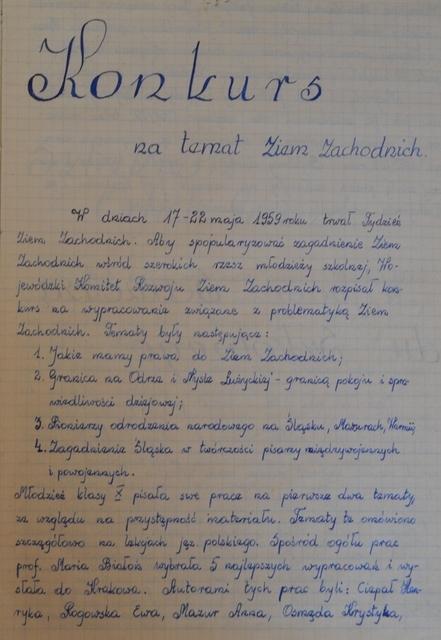 Konkurs
na temat Ziem Zachodnich.
W dniach 17-22 maja 1959 roku trwał Tydzień
Ziem Zachodnich. Aby spopularyzować zagadnienie Ziem
Zachodnich wśród szerokich rzesz młodzieży szkolnej, Wo-
jewódzki Komitet Rozwoju Ziem Zachodnich rozpisał kon-
kurs na wypracowania związane z problematyką Ziem
Zachodnich. Tematy były następujące:
1. Jakie mamy prawa do Ziem Zachodnich;
2. Granica na Odrze i Nysie Łużyckiej - granicą pokoju i spra-
wiedliwości dziejowej;
3. Pionierzy odrodzenia narodowego na Śląsku, Mazurach, Warmii;
4. Zagadnienia Śląska w twórczości pisarzy międzywojennych
i powojennych.
Młodzież klasy X pisała swe prace na pierwsze dwa tematy,
ze względu na przystępność materiału. Tematy te omówiono
szczegółowo na lekcjach jęz. polskiego. Spośród ogółu prac
prof. Maria Białoń wybrała 5 najlepszych wypracowań i wy-
słała do Krakowa. Autorami tych prac byli: Cizpał Hen-
ryka, Rogowska Ewa, Mazur Anna, Osmęda Krystyna,